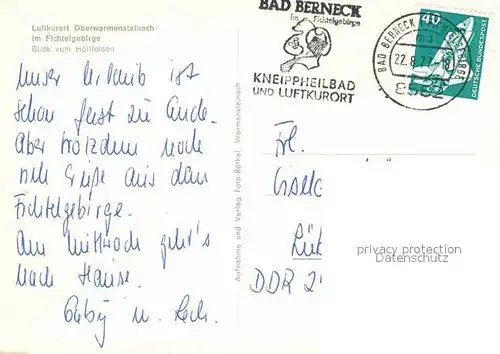 Luftkurort Oberwarmensteinach
im Fichtelgebirge
Blick vom Höllfelsen
Unser Urlaub ist
schon fast zu Ende.
Aber trotzdem noch
viele Grüße aus dem
Fichtelgebirge.
Am Mittwoch geht's
nach Hause.
Gaby u.
Aufnahme und Verlag Foto-Röthel Warmensteinach
BAD BERNECK
im Fichtelgebirge
KNEIPPHEILBAD
UND LUFTKURORT
BAD BERNECK
22.8.77
8582
40
DEUTSCHE BUNDESPOST
Frl.
Gisela
DDR
privacy protection
Datenschutz